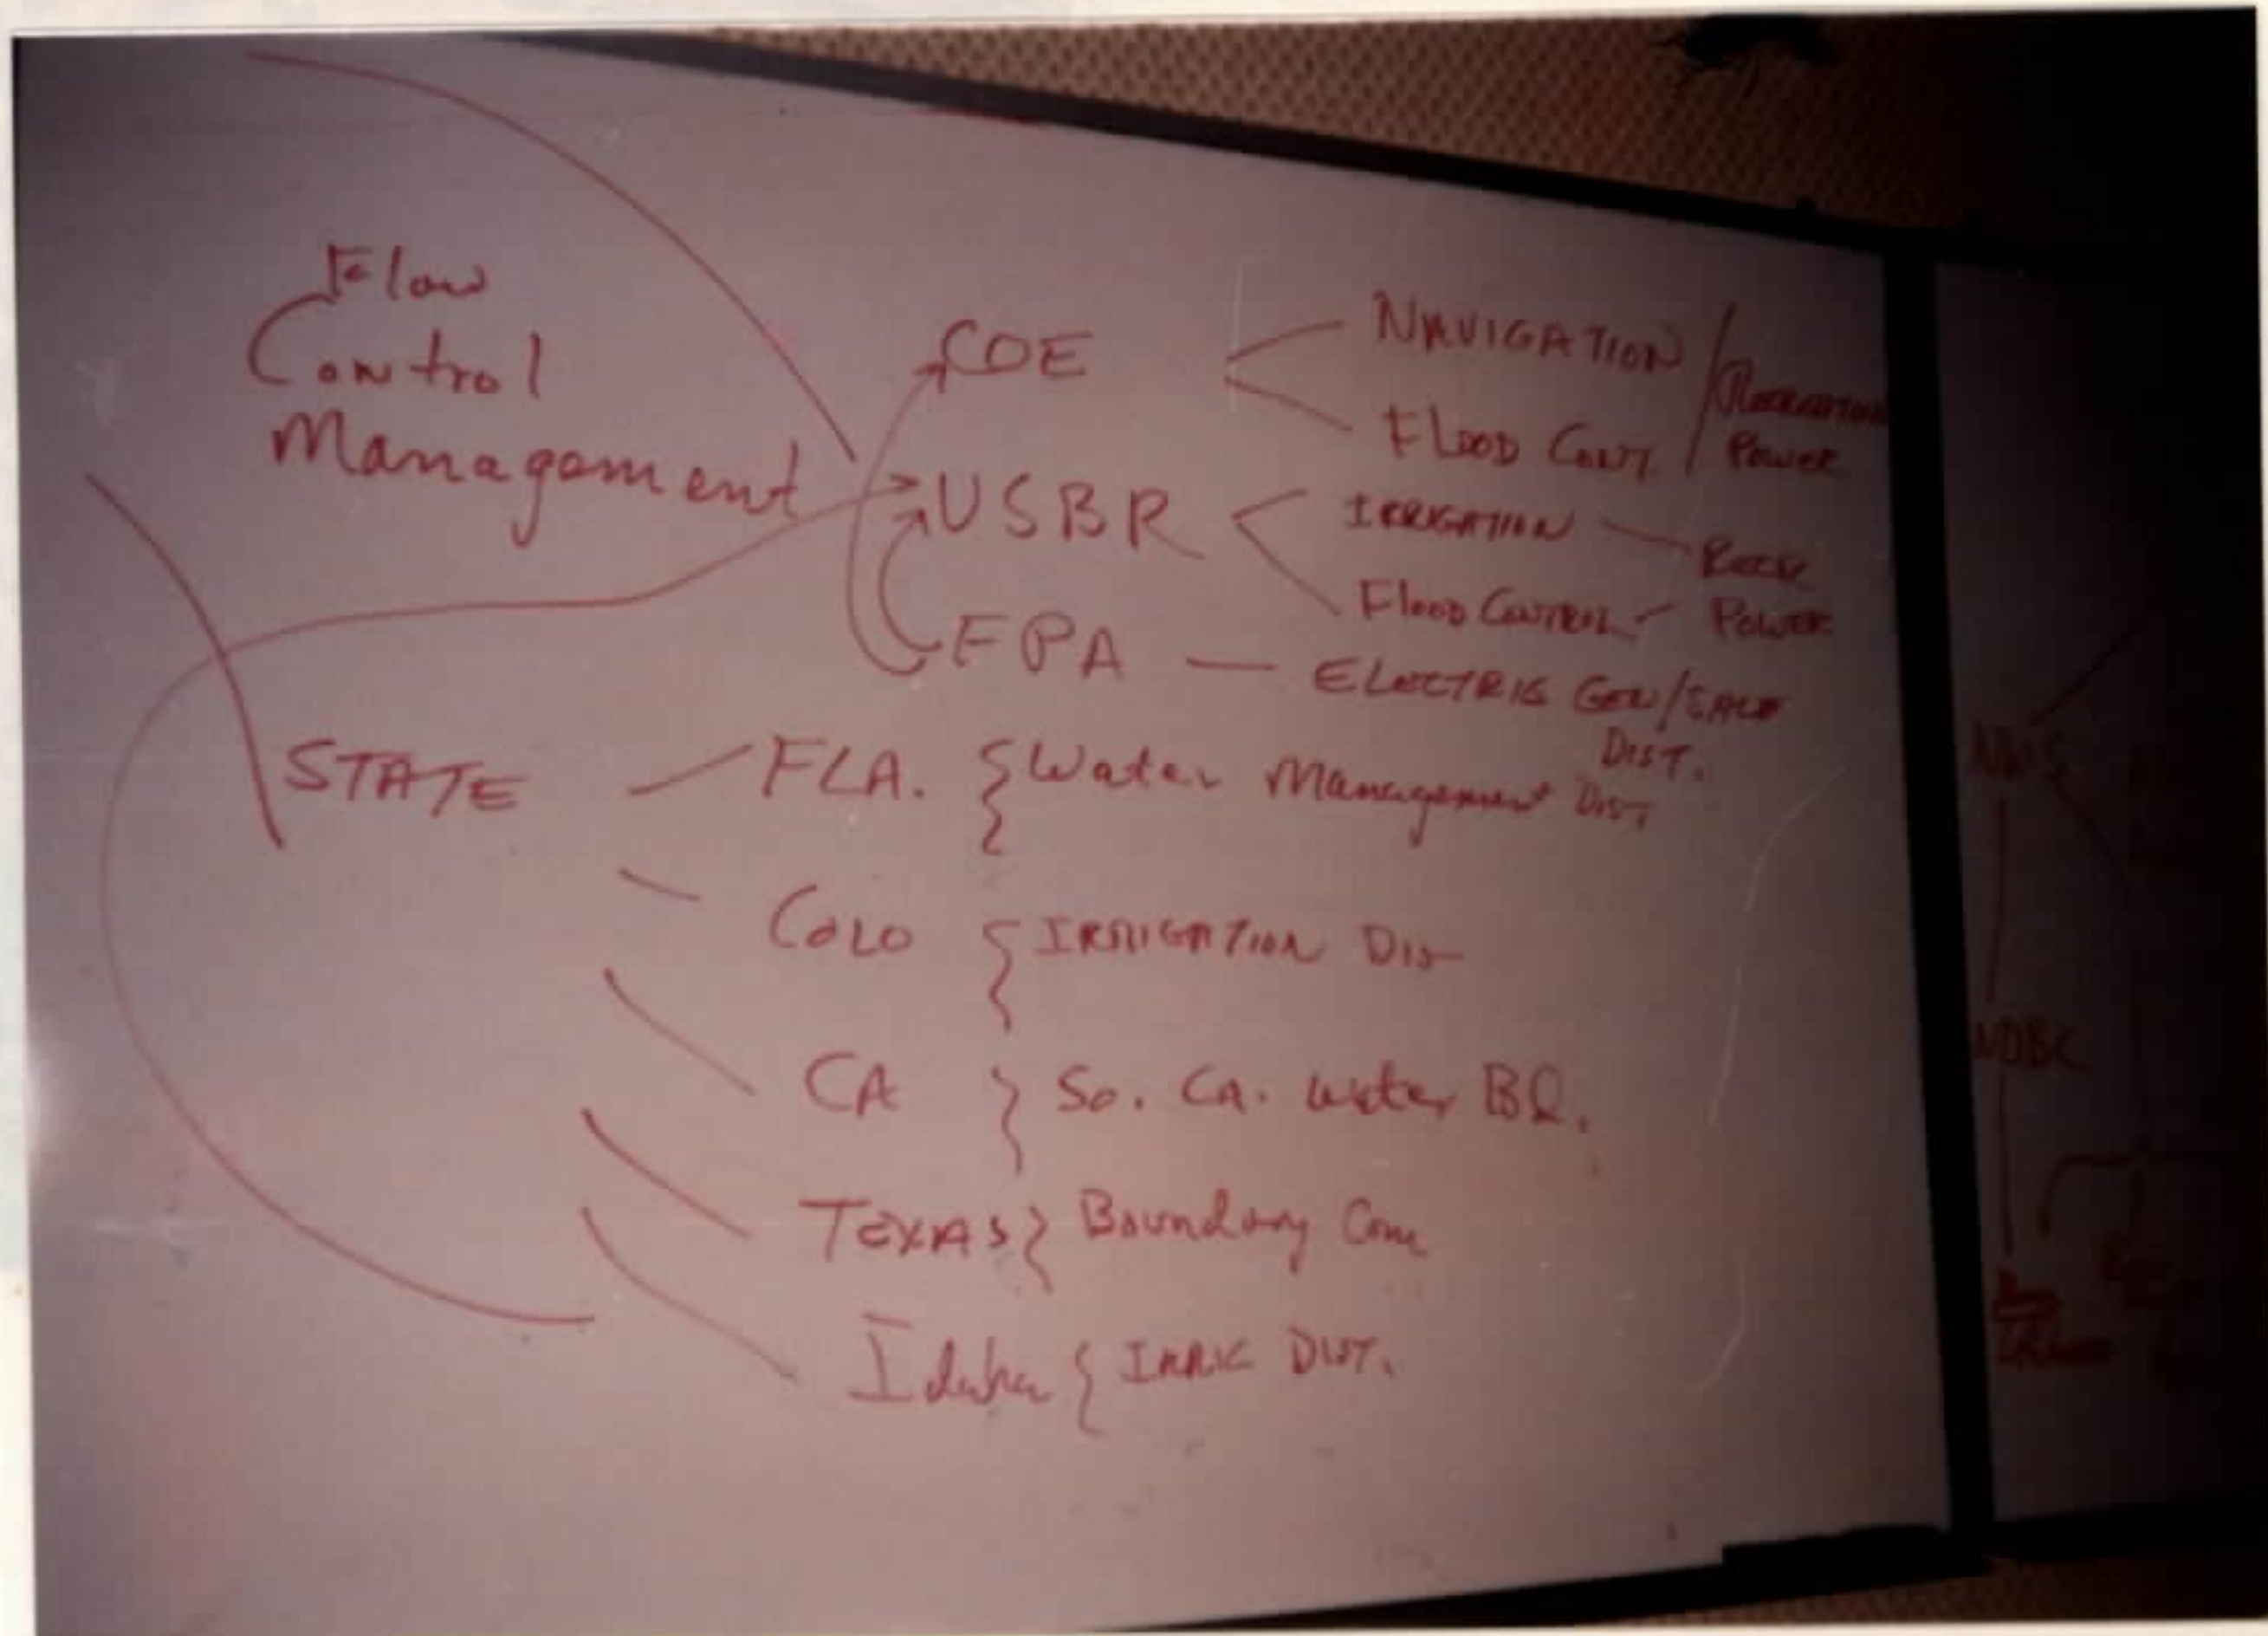 Flow
Control
Management
COE
NAVIGATION
FLOOD CONT.
RECREATION
POWER
USBR
IRRIGATION
FLOOD CONTROL
POWER
EPA — ELECTRIC GEN/SALE
DIST.
STATE
FLA. { Water Management DIST
COLO { IRRIGATION DIS
CA } So. CA. water BD.
TEXAS } Boundary Com
Idaho { IRRIG DIST.
NWS
NDBC